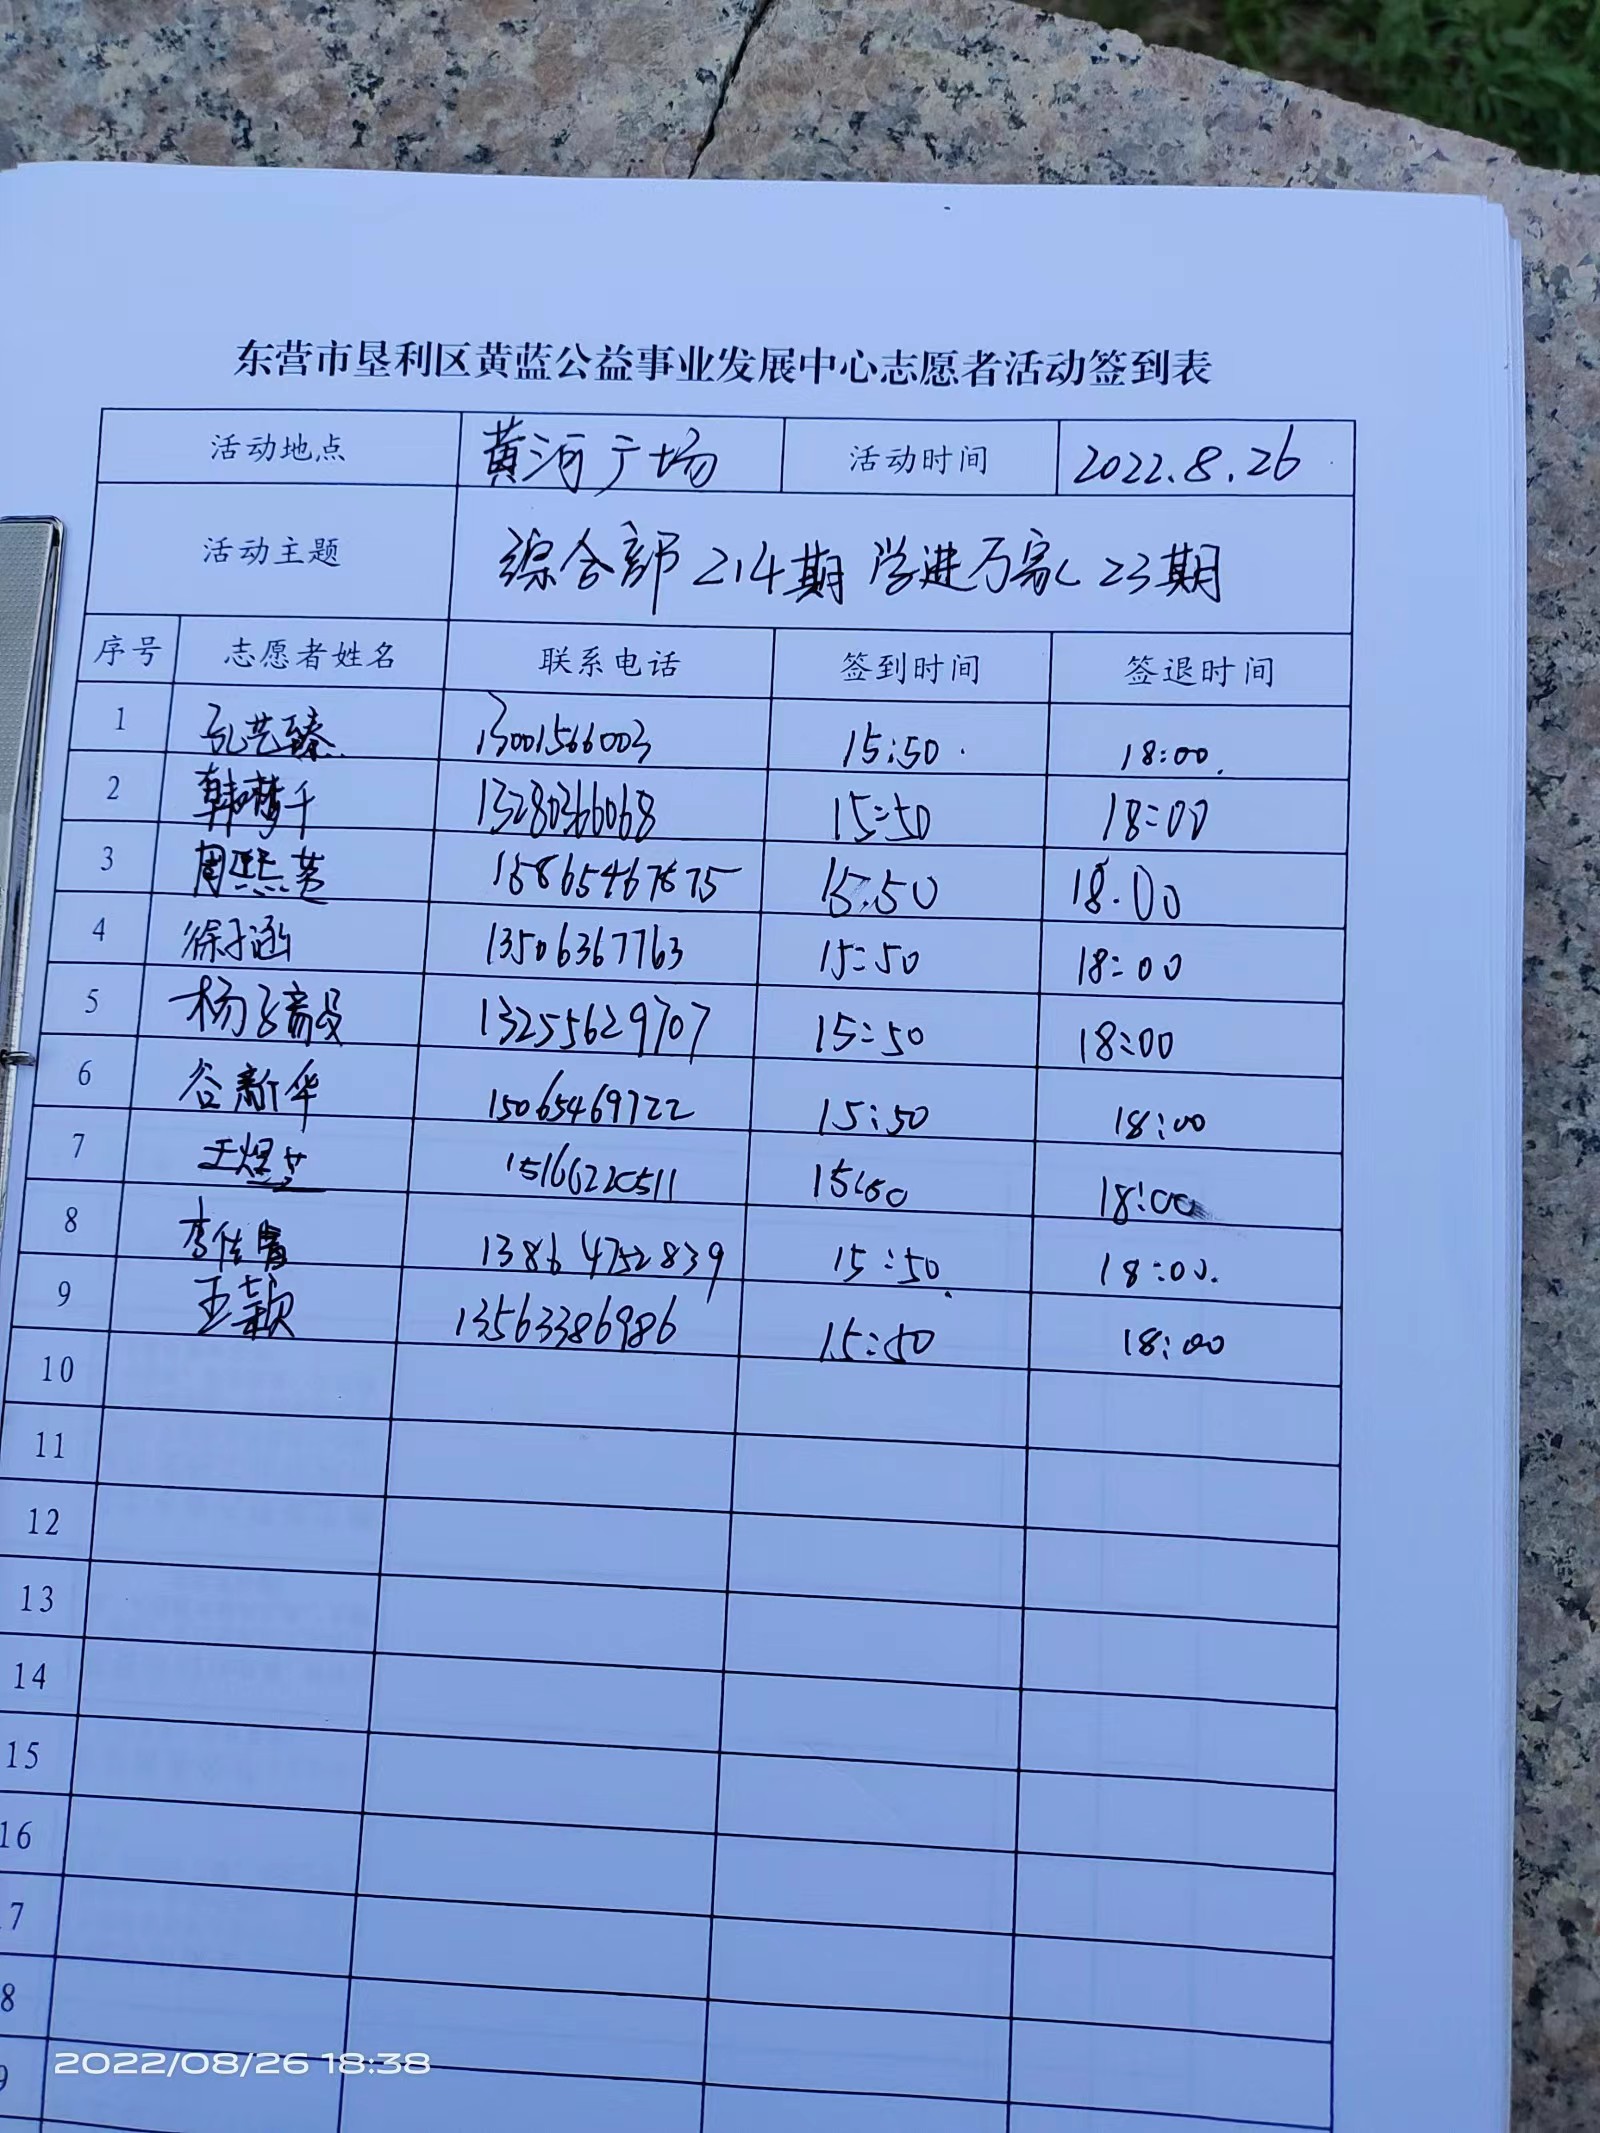 东营市垦利区黄蓝公益事业发展中心志愿者活动签到表
活动地点 黄河广场 活动时间 2022.8.26
活动主题 综合部214期 学进万家 23期
序号 志愿者姓名 联系电话 签到时间 签退时间
1 孔艺臻 13001566003 15:50 18:00
2 韩梦千 13280366068 15:50 18:00
3 周熙芸 15:50 18:00
4 徐子涵 13506367763 15:50 18:00
5 杨 13255629707 15:50 18:00
6 谷新华 15065469722 15:50 18:00
7 王煜 15166220511 15:50 18:00
8 李佳 13864752839 15:50 18:00
9 王颖 13563386986 15:50 18:00
10
11
12
13
14
15
16
7
8
9
2022/08/26 18:38